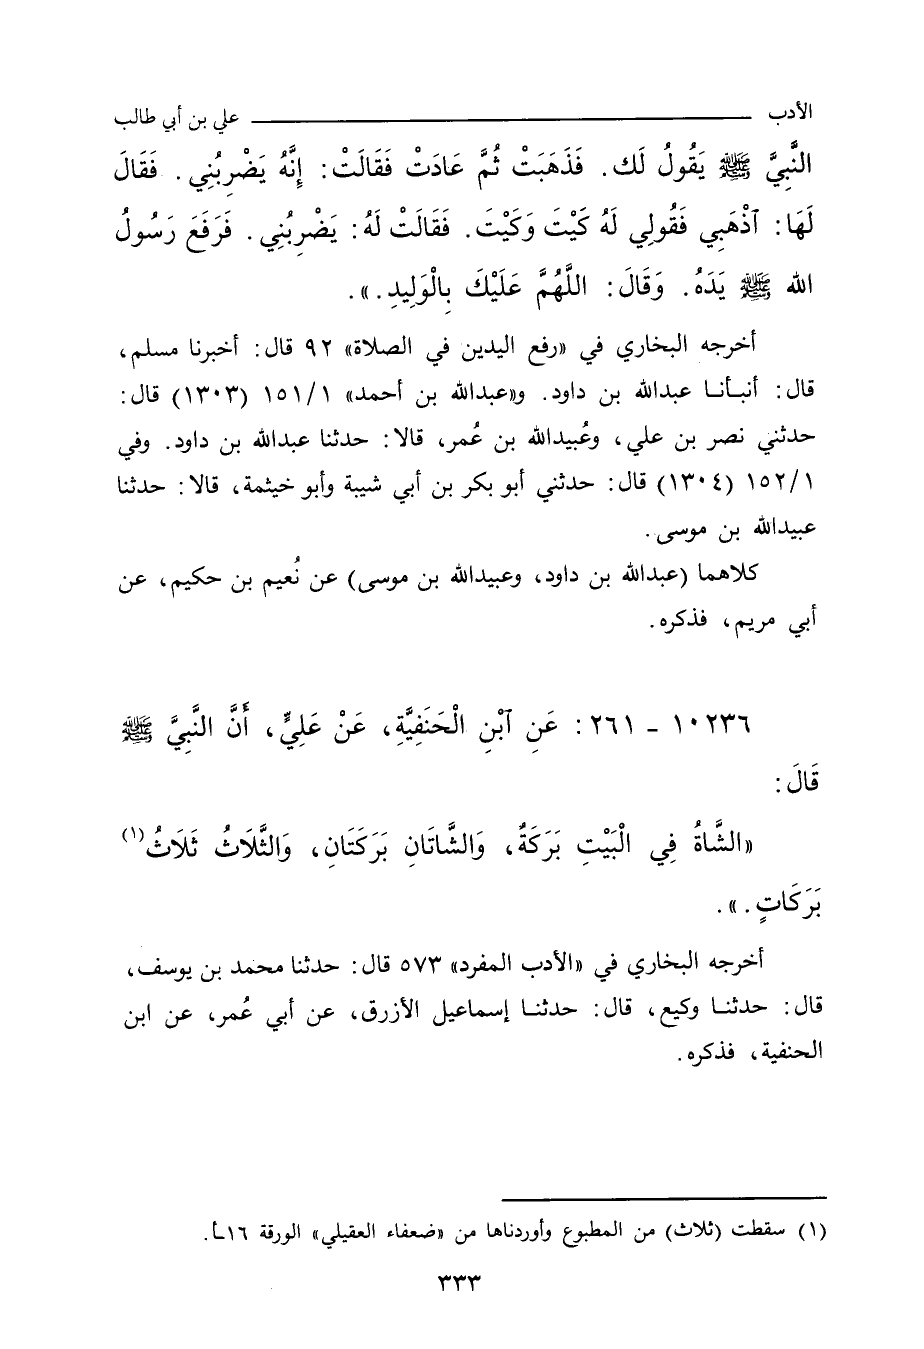 الأدب ــــــــ علي بن أبي طالب
النَّبِيَّ ﷺ يَقُولُ لَك. فَذَهَبَتْ ثُمَّ عَادَتْ فَقَالَتْ: إِنَّهُ يَضْرِبُنِي. فَقَالَ
لَهَا: ٱذْهَبِي فَقُولِي لَهُ كَيْتَ وَكَيْتَ. فَقَالَتْ لَهُ: يَضْرِبُنِي. فَرَفَعَ رَسُولُ
الله ﷺ يَدَهُ. وَقَالَ: اللَّهُمَّ عَلَيْكَ بِالْوَلِيدِ.».
أخرجه البخاري في «رفع اليدين في الصلاة» ٩٢ قال: أخبرنا مسلم،
قال: أنبأنا عبدالله بن داود. و«عبدالله بن أحمد» ١/١٥١ (١٣٠٣) قال:
حدثني نصر بن علي، وعُبيدالله بن عُمر، قالا: حدثنا عبدالله بن داود. وفي
١/١٥٢ (١٣٠٤) قال: حدثني أبو بكر بن أبي شيبة وأبو خيثمة، قالا: حدثنا
عبيدالله بن موسى.
كلاهما (عبدالله بن داود، وعبيدالله بن موسى) عن نُعيم بن حكيم، عن
أبي مريم، فذكره.
١٠٢٣٦ - ٢٦١: عَنِ ٱبْنِ الْحَنَفِيَّةِ، عَنْ عَلِيٍّ، أَنَّ النَّبِيَّ ﷺ
قَالَ:
«الشَّاةُ فِي الْبَيْتِ بَرَكَةٌ، وَالشَّاتَانِ بَرَكَتَانِ، وَالثَّلَاثُ ثَلَاثُ(١)
بَرَكَاتٍ.».
أخرجه البخاري في «الأدب المفرد» ٥٧٣ قال: حدثنا محمد بن يوسف،
قال: حدثنا وكيع، قال: حدثنا إسماعيل الأزرق، عن أبي عُمر، عن ابن
الحنفية، فذكره.
(١) سقطت (ثلاث) من المطبوع وأوردناها من «ضعفاء العقيلي» الورقة ١٦ـأ.
٣٣٣